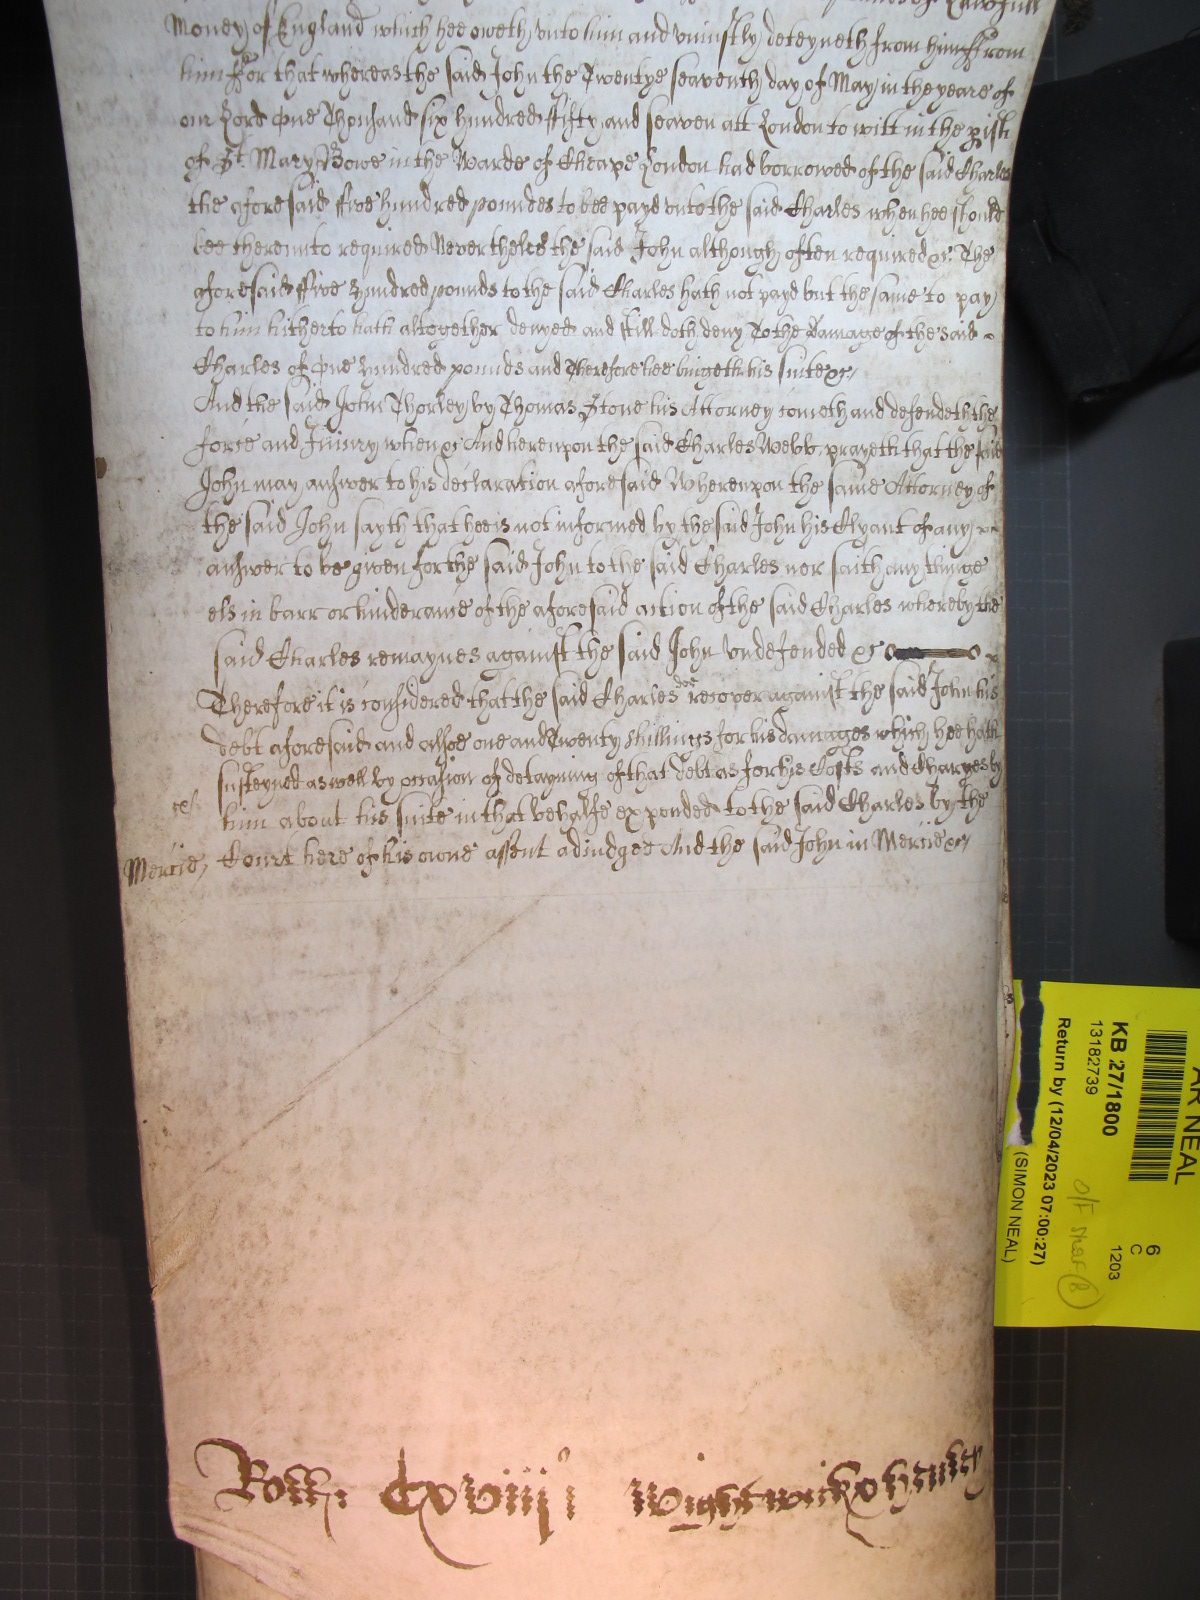 Lawfull
Money of England which hee oweth vnto him and vniustly deteyneth from him ffrom
him ffor that whereas the said John the Twentye seaventh day of May in the yeare of
our Lord One Thousand six hundred ffifty and seaven att London to witt in the pish
of St. Mary Bowe in the Warde of Cheape London had borrowed of the said Charles
the aforesaid ffive hundred poundes to bee payd vnto the said Charles when hee should
bee thereunto required Neverthelesse the said John although often required &c. The
aforesaid ffive hundred pounds to the said Charles hath not payd but the same to pay
to him hitherto hath altogether denyed and still doth deny To the Damage of the said
Charles of One hundred pounds and Therefore hee bringeth his suite &c
And the said John Thorley by Thomas Stone his Attorney cometh and defendeth the
force and Iniury when &c And hereupon the said Charles Webb prayeth that the said
John may answer to his declaration aforesaid Whereupon the same Attorney of
the said John sayth that hee is not informed by the said John his Clyant of any
answer to be given for the said John to the said Charles nor saith any thinge
els in barr or hinderance of the aforesaid action of the said Charles whereby the
said Charles remaynes against the said John vndefended &c
Therefore it is considered that the said Charles doe recover against the said John his
debt aforesaid and alsoe one and Twenty shillings for his damages which hee hath
susteyned as well by occasion of detayning of that debt as for his Costs and Charges by
him about his suite in that behalfe expended to the said Charles by the
Mercie Court here of his owne assent adiudged And the said John in Mercie &c
Rott. Cxviiij Wightwick
AR NEAL
KB 27/1800
13182739
Return by (12/04/2023 07:00:27)
(SIMON NEAL)
6
C
1203
O/F Shelf (8)